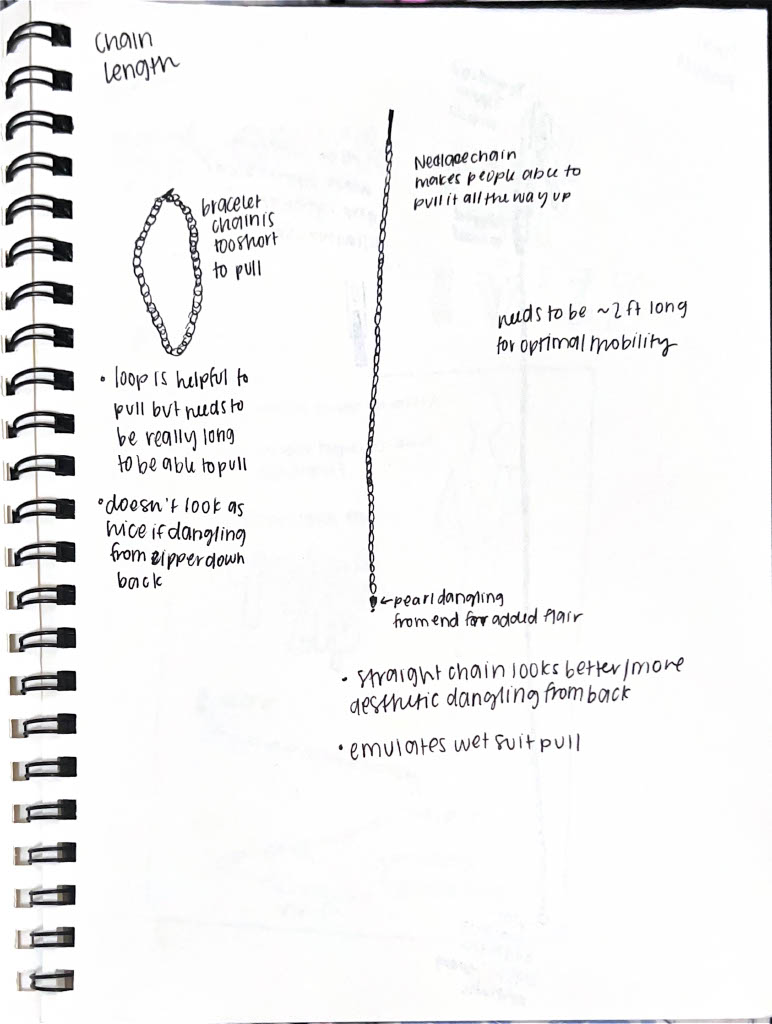 chain
length
bracelet
chain is
too short
to pull
• loop is helpful to
pull but needs to
be really long
to be able to pull
• doesn't look as
nice if dangling
from zipper down
back
Necklace chain
makes people able to
pull it all the way up
needs to be ~2 ft long
for optimal mobility
←pearl dangling
from end for added flair
• straight chain looks better/more
aesthetic dangling from back
• emulates wet suit pull